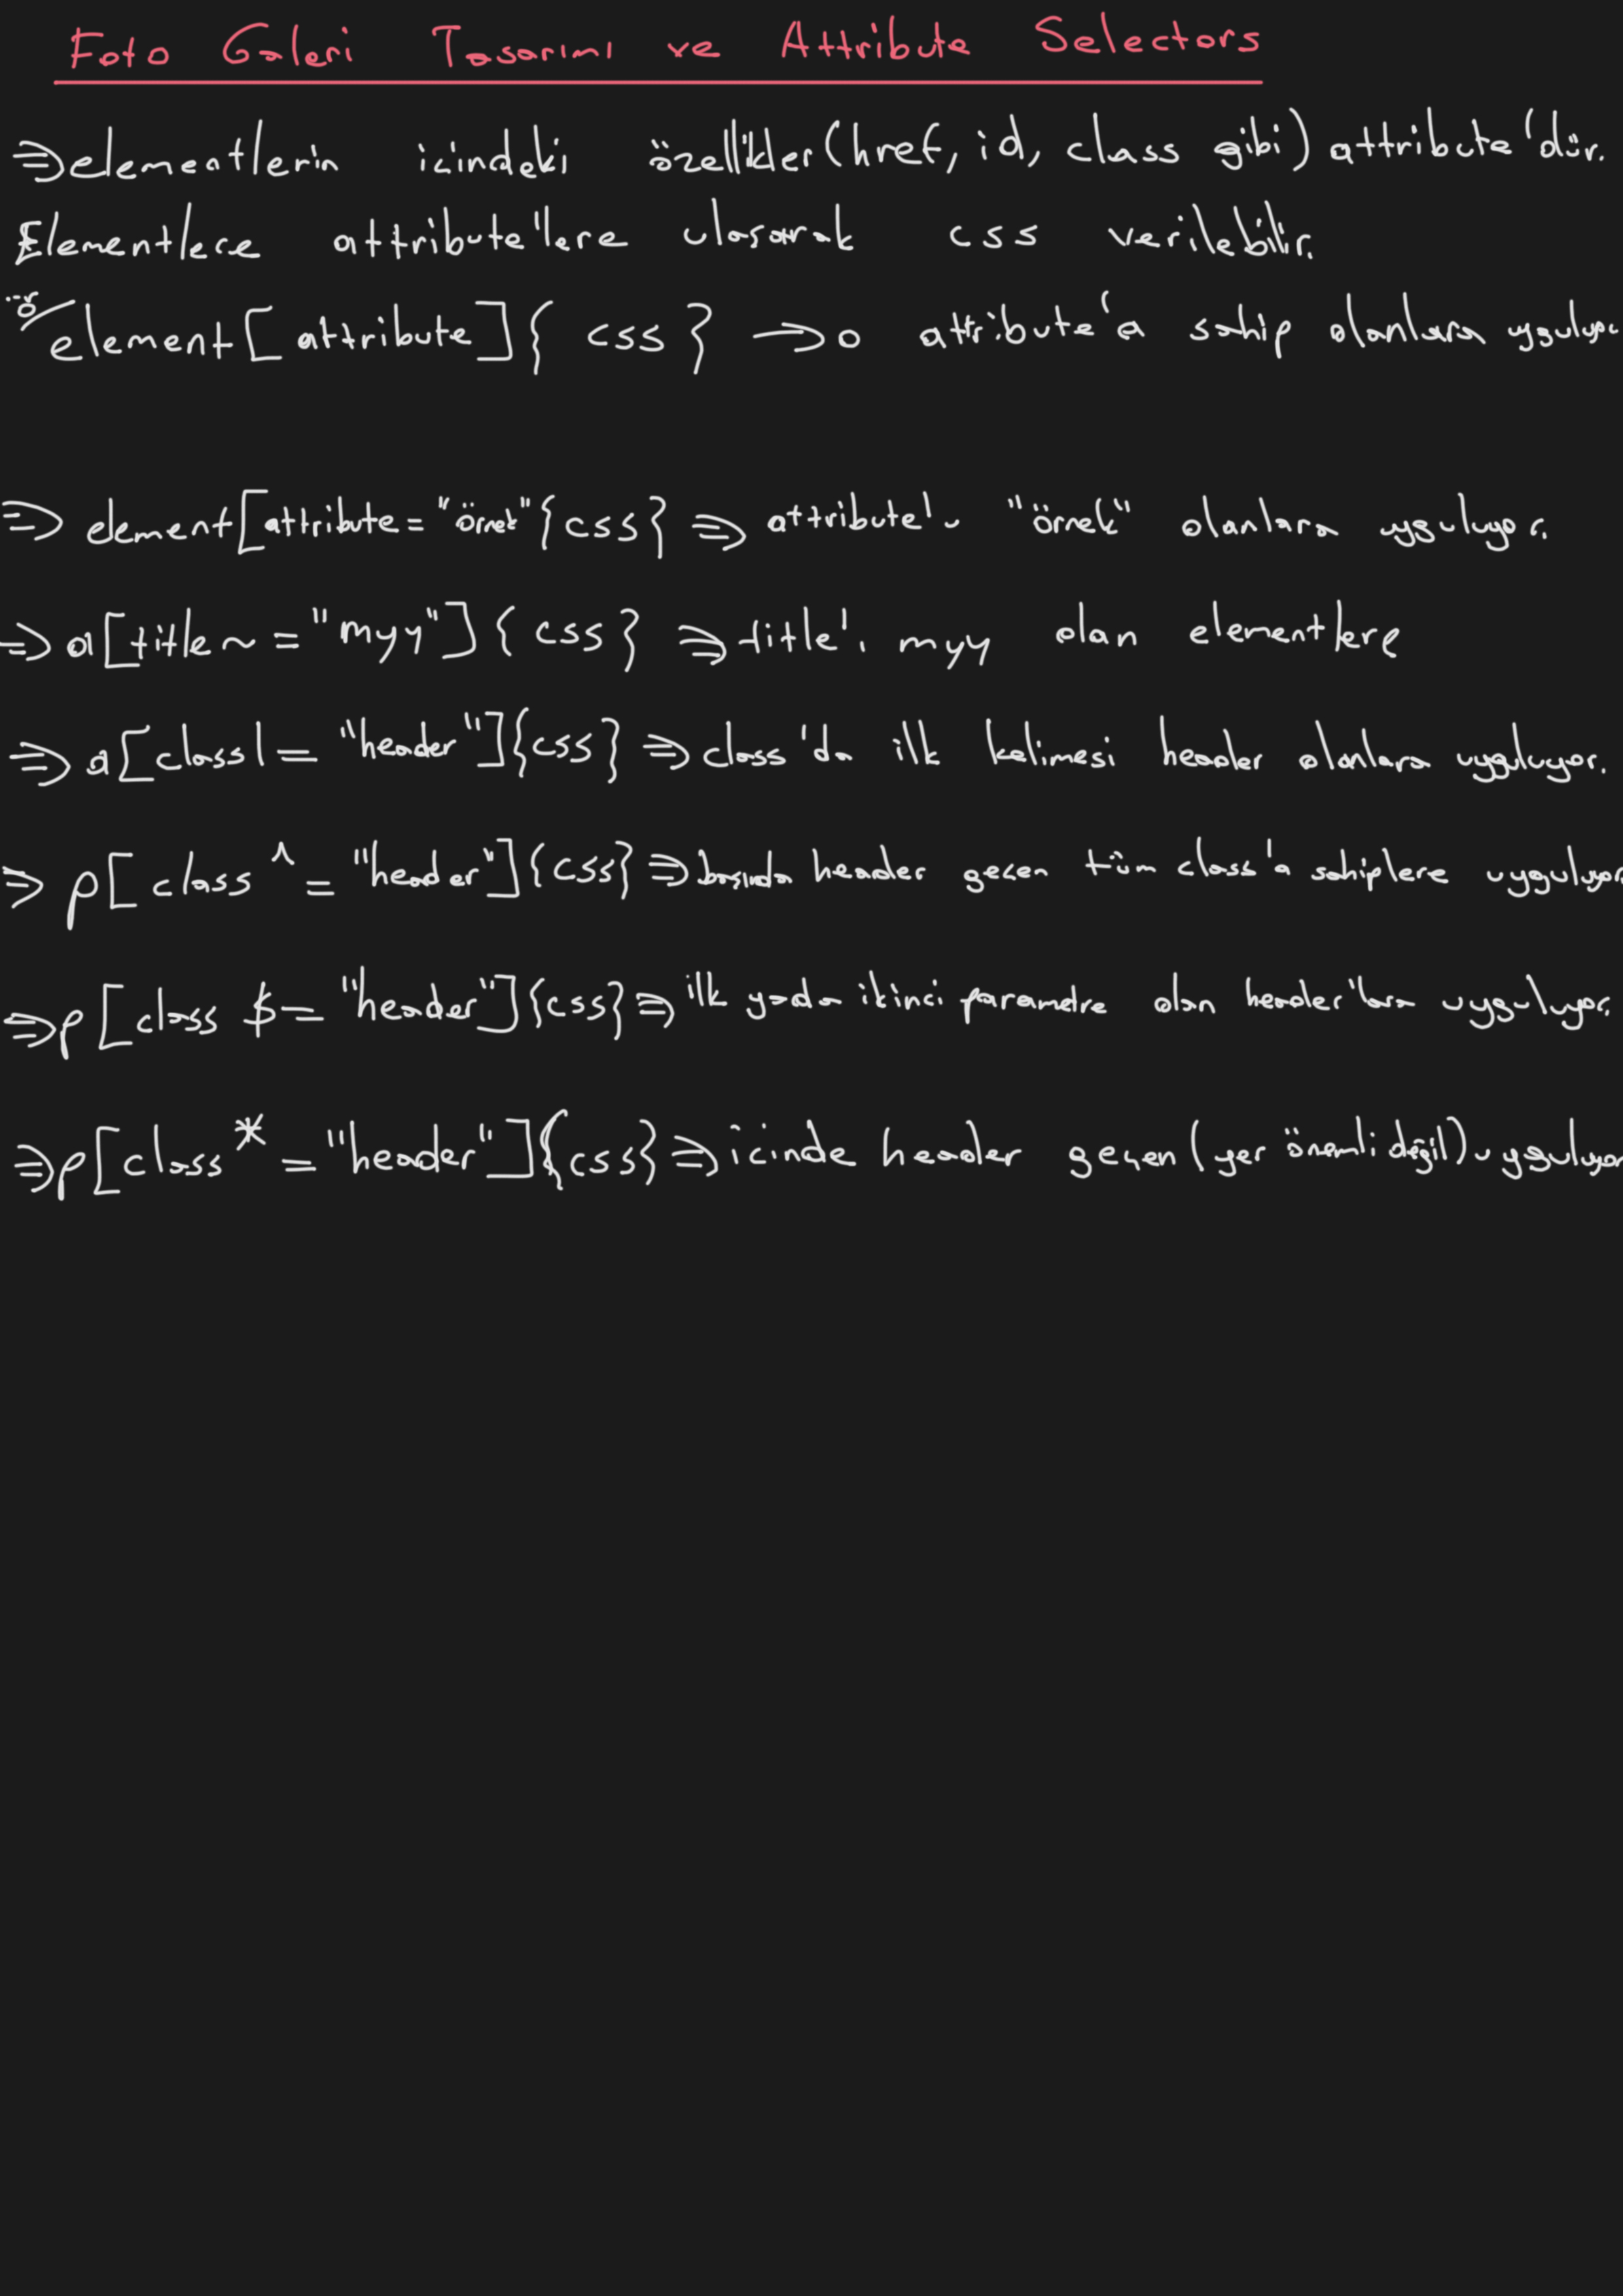 Foto Galeri Tasarımı ve Attribute Selectors
⇒ elementlerin içindeki özellikler (href, id, class gibi) attribute'dür.
Elementlere attribute'lere ulaşarak css verilebilir.
ör/ element[attribute]{ css } → o attribute'a sahip olanlara uyguluyor
⇒ element[attribute="örnek"{css} ⇒ attribute'u "örnek" olanlara uyguluyor.
⇒ a[title~="myy"]{ css } ⇒ title'ı myy olan elementlere
⇒ a[class|="header"]{css} ⇒ class'da ilk kelimesi header olanlara uyguluyor.
⇒ p[class^="header"]{css} ⇒ başında header geçen tüm class'a sahiplere uyguluyor
⇒ p[class $="header"]{css} ⇒ ilk yada ikinci parametre olan header'lara uyguluyor.
⇒ p[class*="header"]{css} ⇒ içinde header geçen (yer önemli değil) uyguluyor